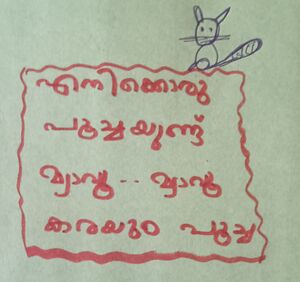 എനിക്കൊരു
പൂച്ചയുണ്ട്
മ്യാവൂ.. മ്യാവൂ
കരയും പൂച്ച